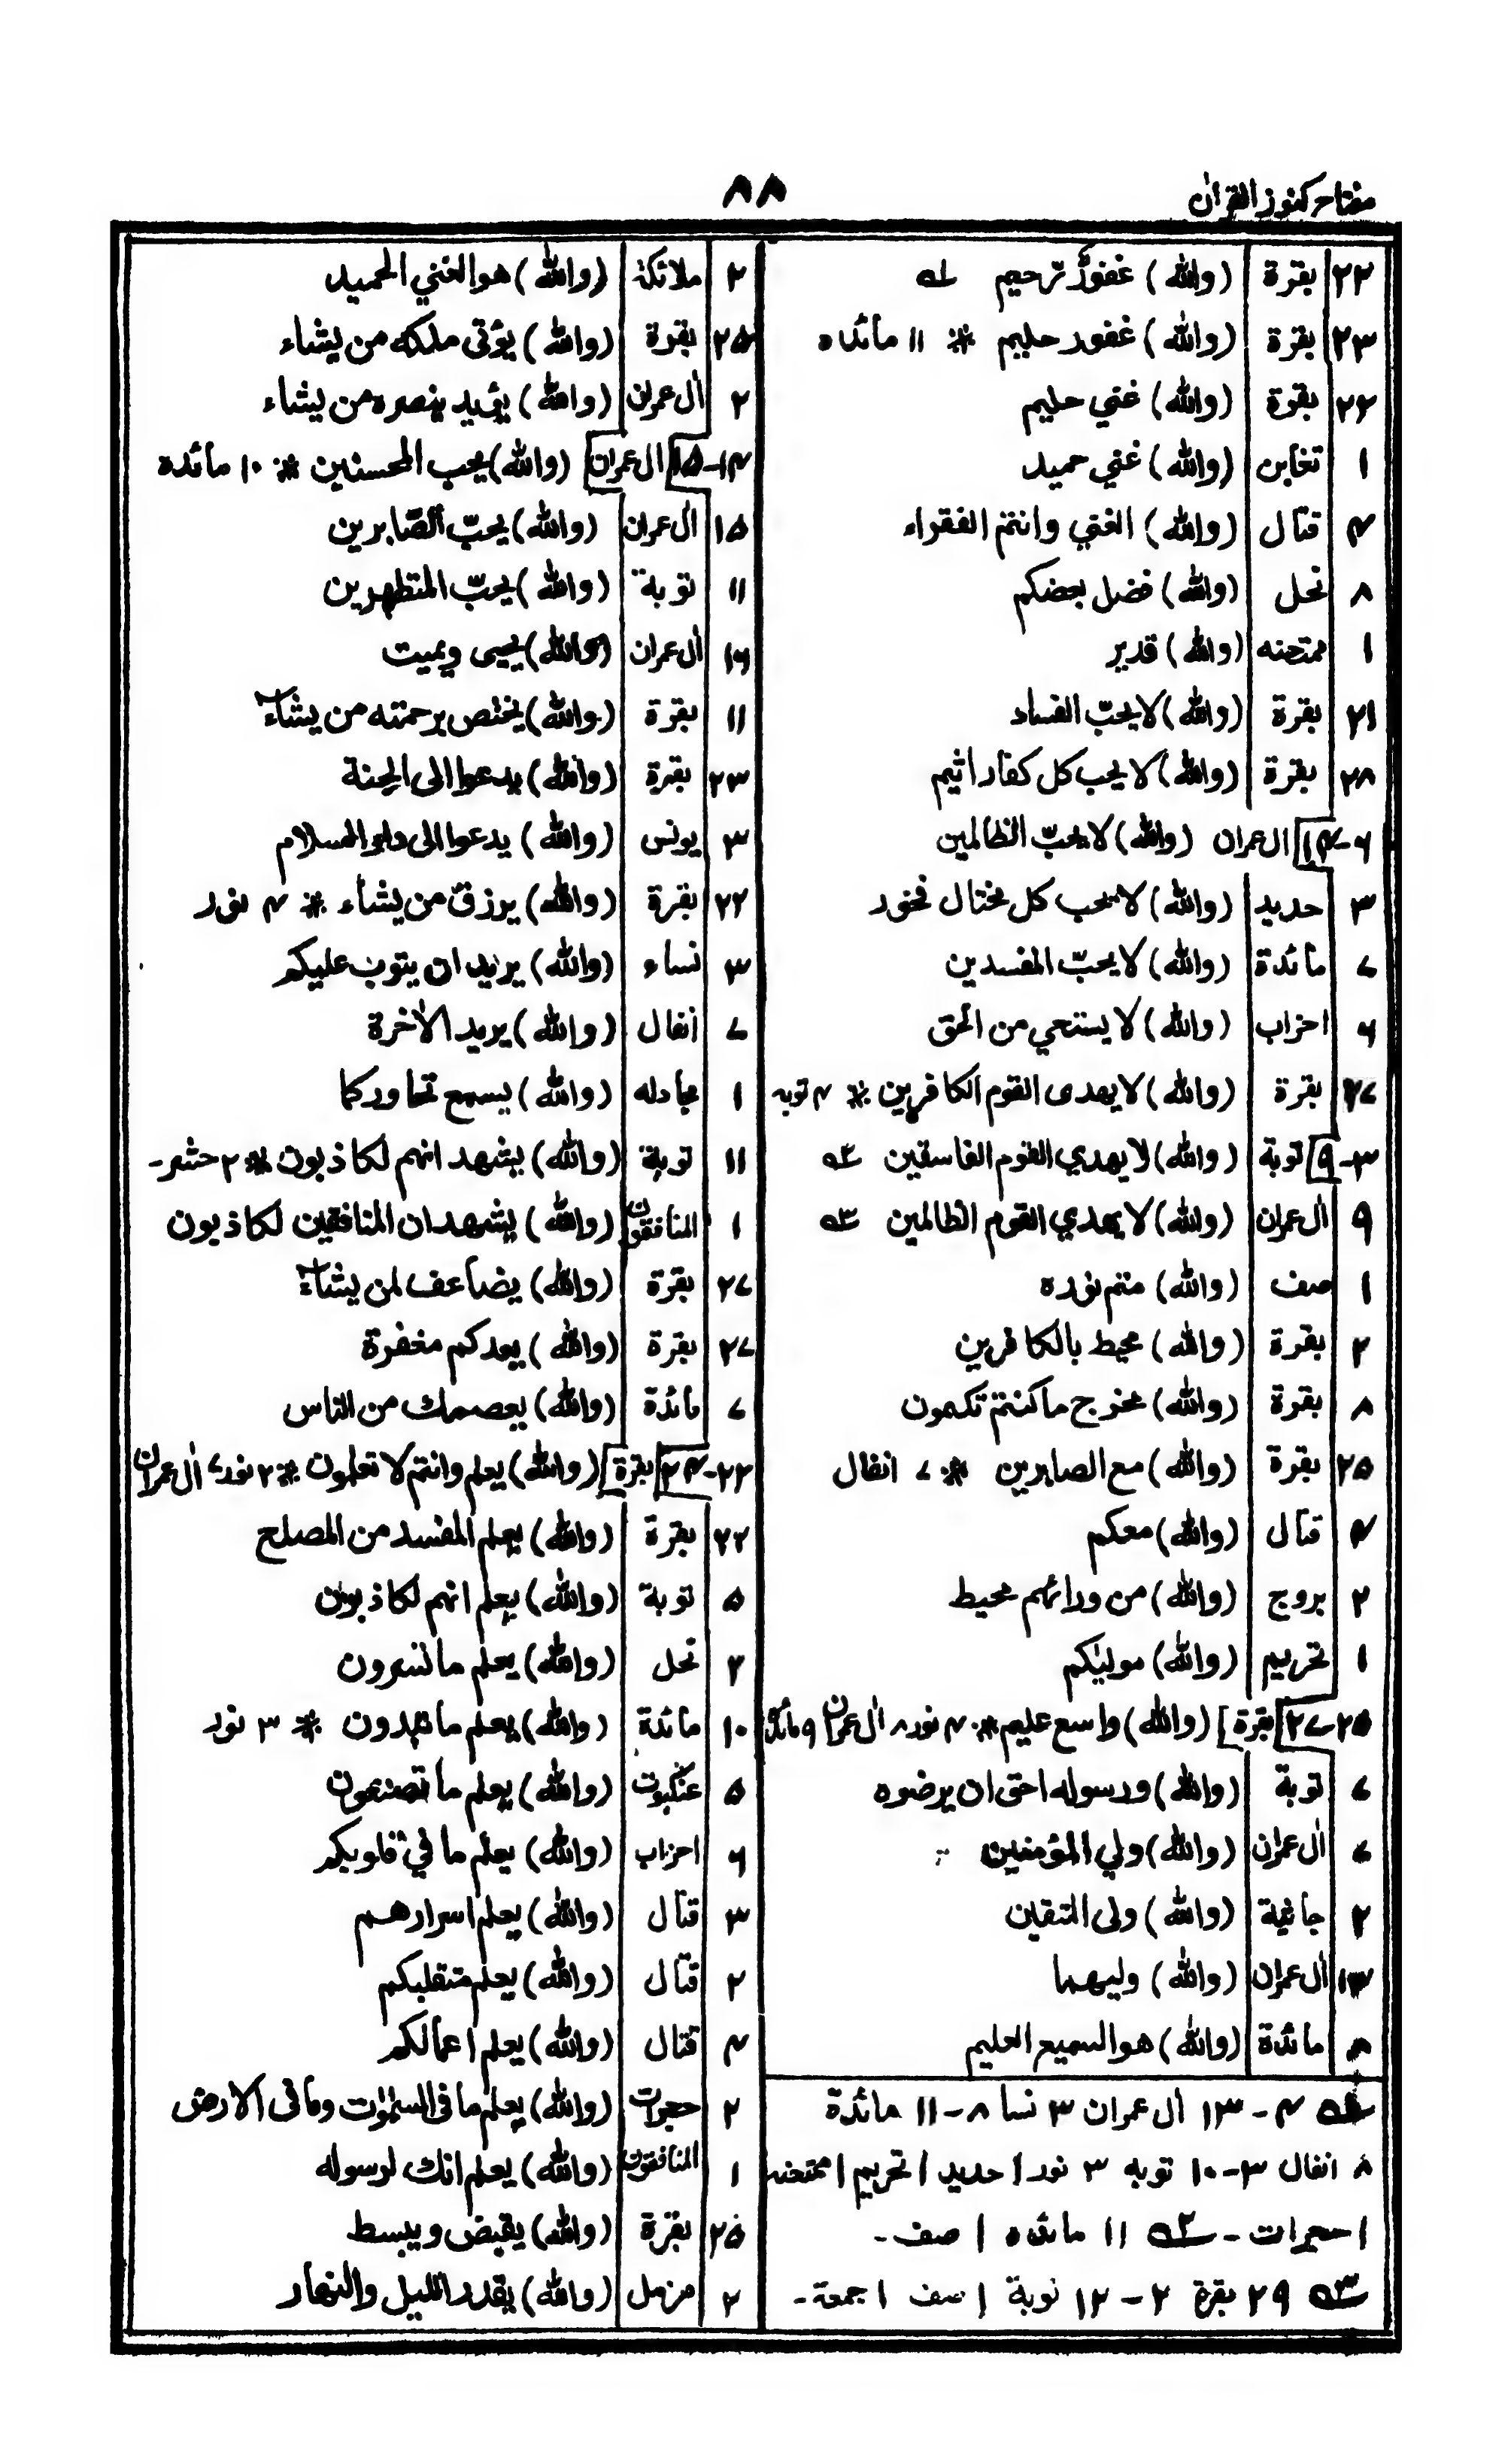 مفتاح كنوز القرآن
٨٨
٢٢ بقرة (والله) غفورٌ رّحيم ؎۱
٢٣ بقرة (والله) غفور حليم ※ ١١ مائده
٢٢ بقرة (والله) غني حليم
١ تغابن (والله) غني حميد
۴ قتال (والله) الغني وانتم الفقراء
٨ نحل (والله) فضل بعضكم
١ ممتحنه (والله) قدير
٢١ بقرة (والله) لا يحبّ الفساد
٢٨ بقرة (والله) لا يحب كل كفار اثيم
۶-١۴ اٰل عمران (والله) لا يحبّ الظالمين
٣ حديد (والله) لا يحب كل مختال فخور
٧ مائدة (والله) لا يحبّ المفسدين
۶ احزاب (والله) لا يستحي من الحق
٢٧ بقرة (والله) لا يهدى القوم الكافرين ※ ۴ توبه
٣-٩ توبة (والله) لا يهدي القوم الفاسقين ؎٢
٩ اٰل عمران (والله) لا يهدي القوم الظالمين ؎٣
١ صف (والله) متم نوره
٢ بقرة (والله) محيط بالكافرين
٨ بقرة (والله) مخرج ما كنتم تكمون
٢۵ بقرة (والله) مع الصابرين ※ ٧ انفال
۴ قتال (والله) معكم
٢ بروج (والله) من ورائهم محيط
١ تحريم (والله) موليٰكم
٢۵-٢٧ بقرة (والله) واسع عليم ※ ۴ نور ٨ اٰل عمران ٩ مائدة
٧ توبة (والله) ورسوله احق ان يرضوه
٧ اٰل عمران (والله) ولي المؤمنين
٢ جاثية (والله) ولى المتقين
١٣ اٰل عمران (والله) وليهما
٨ مائدة (والله) هو السميع العليم
؎١ ۴-١٣ اٰل عمران ٣ نسا ٨-١١ مائدة
٨ انفال ٣-١٠ توبه ٣ نور ١ حديد ١ تحريم ١ ممتحنه
١ حجرات - ؎٢ ١١ مائده ١ صف -
؎٣ ٢٩ بقرة ٢-١٢ توبة ١ صف ١ جمعة -
٢ ملائكة (والله) هو الغني الحميد
٢۵ بقرة (والله) يؤتى ملكه من يشاء
٢ اٰل عمران (والله) يؤيد بنصره من يشاء
١۴-١۵ اٰل عمران (والله) يحب المحسنين ※ ١٠ مائدة
١۵ اٰل عمران (والله) يحبّ الصّابرين
١١ توبة (والله) يحبّ المتطهرين
١۶ اٰل عمران (والله) يحيى ويميت
١١ بقرة (والله) يختص برحمته من يشآء
٢٣ بقرة (والله) يدعوا الى الجنة
٣ يونس (والله) يدعوا الى دار السلام
٢٢ بقرة (والله) يرزق من يشاء ※ ۴ نور
٣ نساء (والله) يريد ان يتوب عليكم
٧ انفال (والله) يريد الاٰخرة
١ مجادله (والله) يسمع تحاوركما
١١ توبة (والله) يشهد انهم لكاذبون ※ ٢ حشر -
١ المنافقون (والله) يشهد ان المنافقين لكاذبون
٢٧ بقرة (والله) يضاعف لمن يشآء
٢٧ بقرة (والله) يعدكم مغفرة
٧ مائدة (والله) يعصمك من الناس
٢٢-٢۴ بقرة (والله) يعلم وانتم لا تعلمون ※ ٢ نور ٧ اٰل عمران
٢٢ بقرة (والله) يعلم المفسد من المصلح
۵ توبة (والله) يعلم انهم لكاذبون
٢ نحل (والله) يعلم ما تسرون
١٠ مائدة (والله) يعلم ما تبدون ※ ٣ نور
۵ عنكبوت (والله) يعلم ما تصنعون
۶ احزاب (والله) يعلم ما في قلوبكم
٣ قتال (والله) يعلم اسرارهم
٢ قتال (والله) يعلم متقلبكم
۴ قتال (والله) يعلم اعمالكم
٢ حجرات (والله) يعلم ما فى السمٰوات وما فى الارض
١ المنافقون (والله) يعلم انك لرسوله
٢۵ بقرة (والله) يقبض ويبسط
٢ مزمل (والله) يقدر الليل والنهار